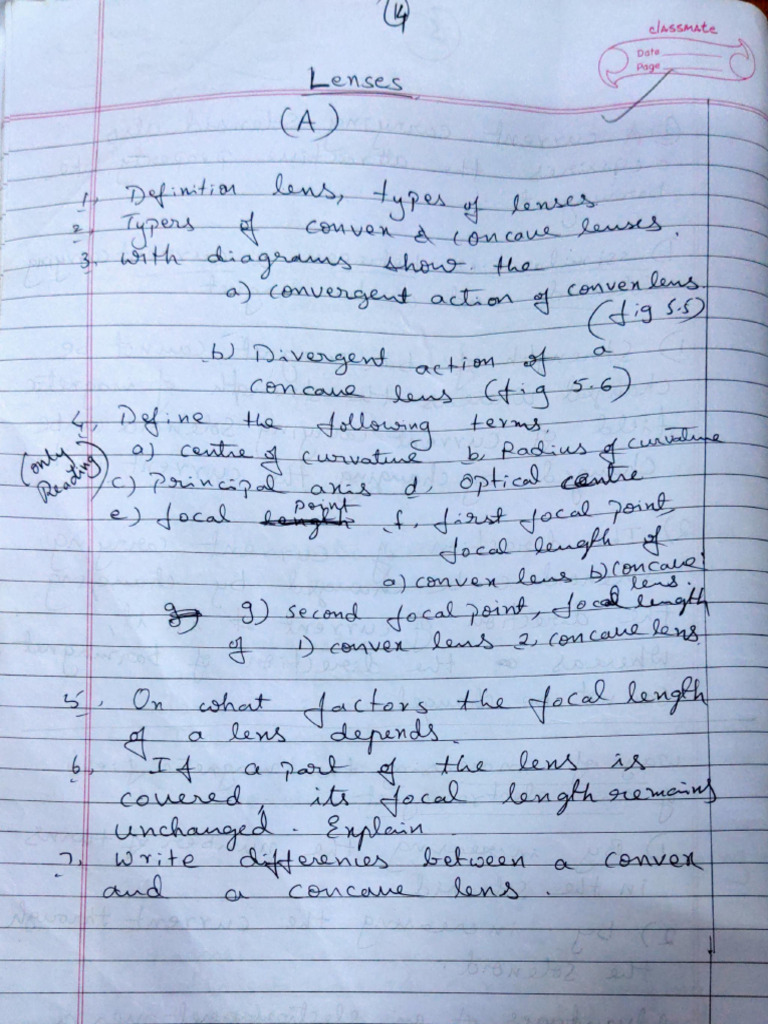 14
classmate
Date
Page
Lenses
(A)
1. Definition lens, types of lenses
2. Typers of convex & concave lenses.
3. With diagrams show the
a) convergent action of convex lens
(fig 5.5)
b) Divergent action of a
concave lens (fig 5.6)
4. Define the following terms.
(only Reading)
a) centre of curvature b, Radius of curvature
c) principal axis d, optical centre
e) focal point f, first focal point,
focal length of
a) convex lens b) concave
lens.
g) second focal point, focal length
of 1) convex lens 2, concave lens.
5. On what factors the focal length
of a lens depends.
6. If a part of the lens is
covered, its focal length remains
unchanged. Explain.
7. Write differencies between a convex
and a concave lens.